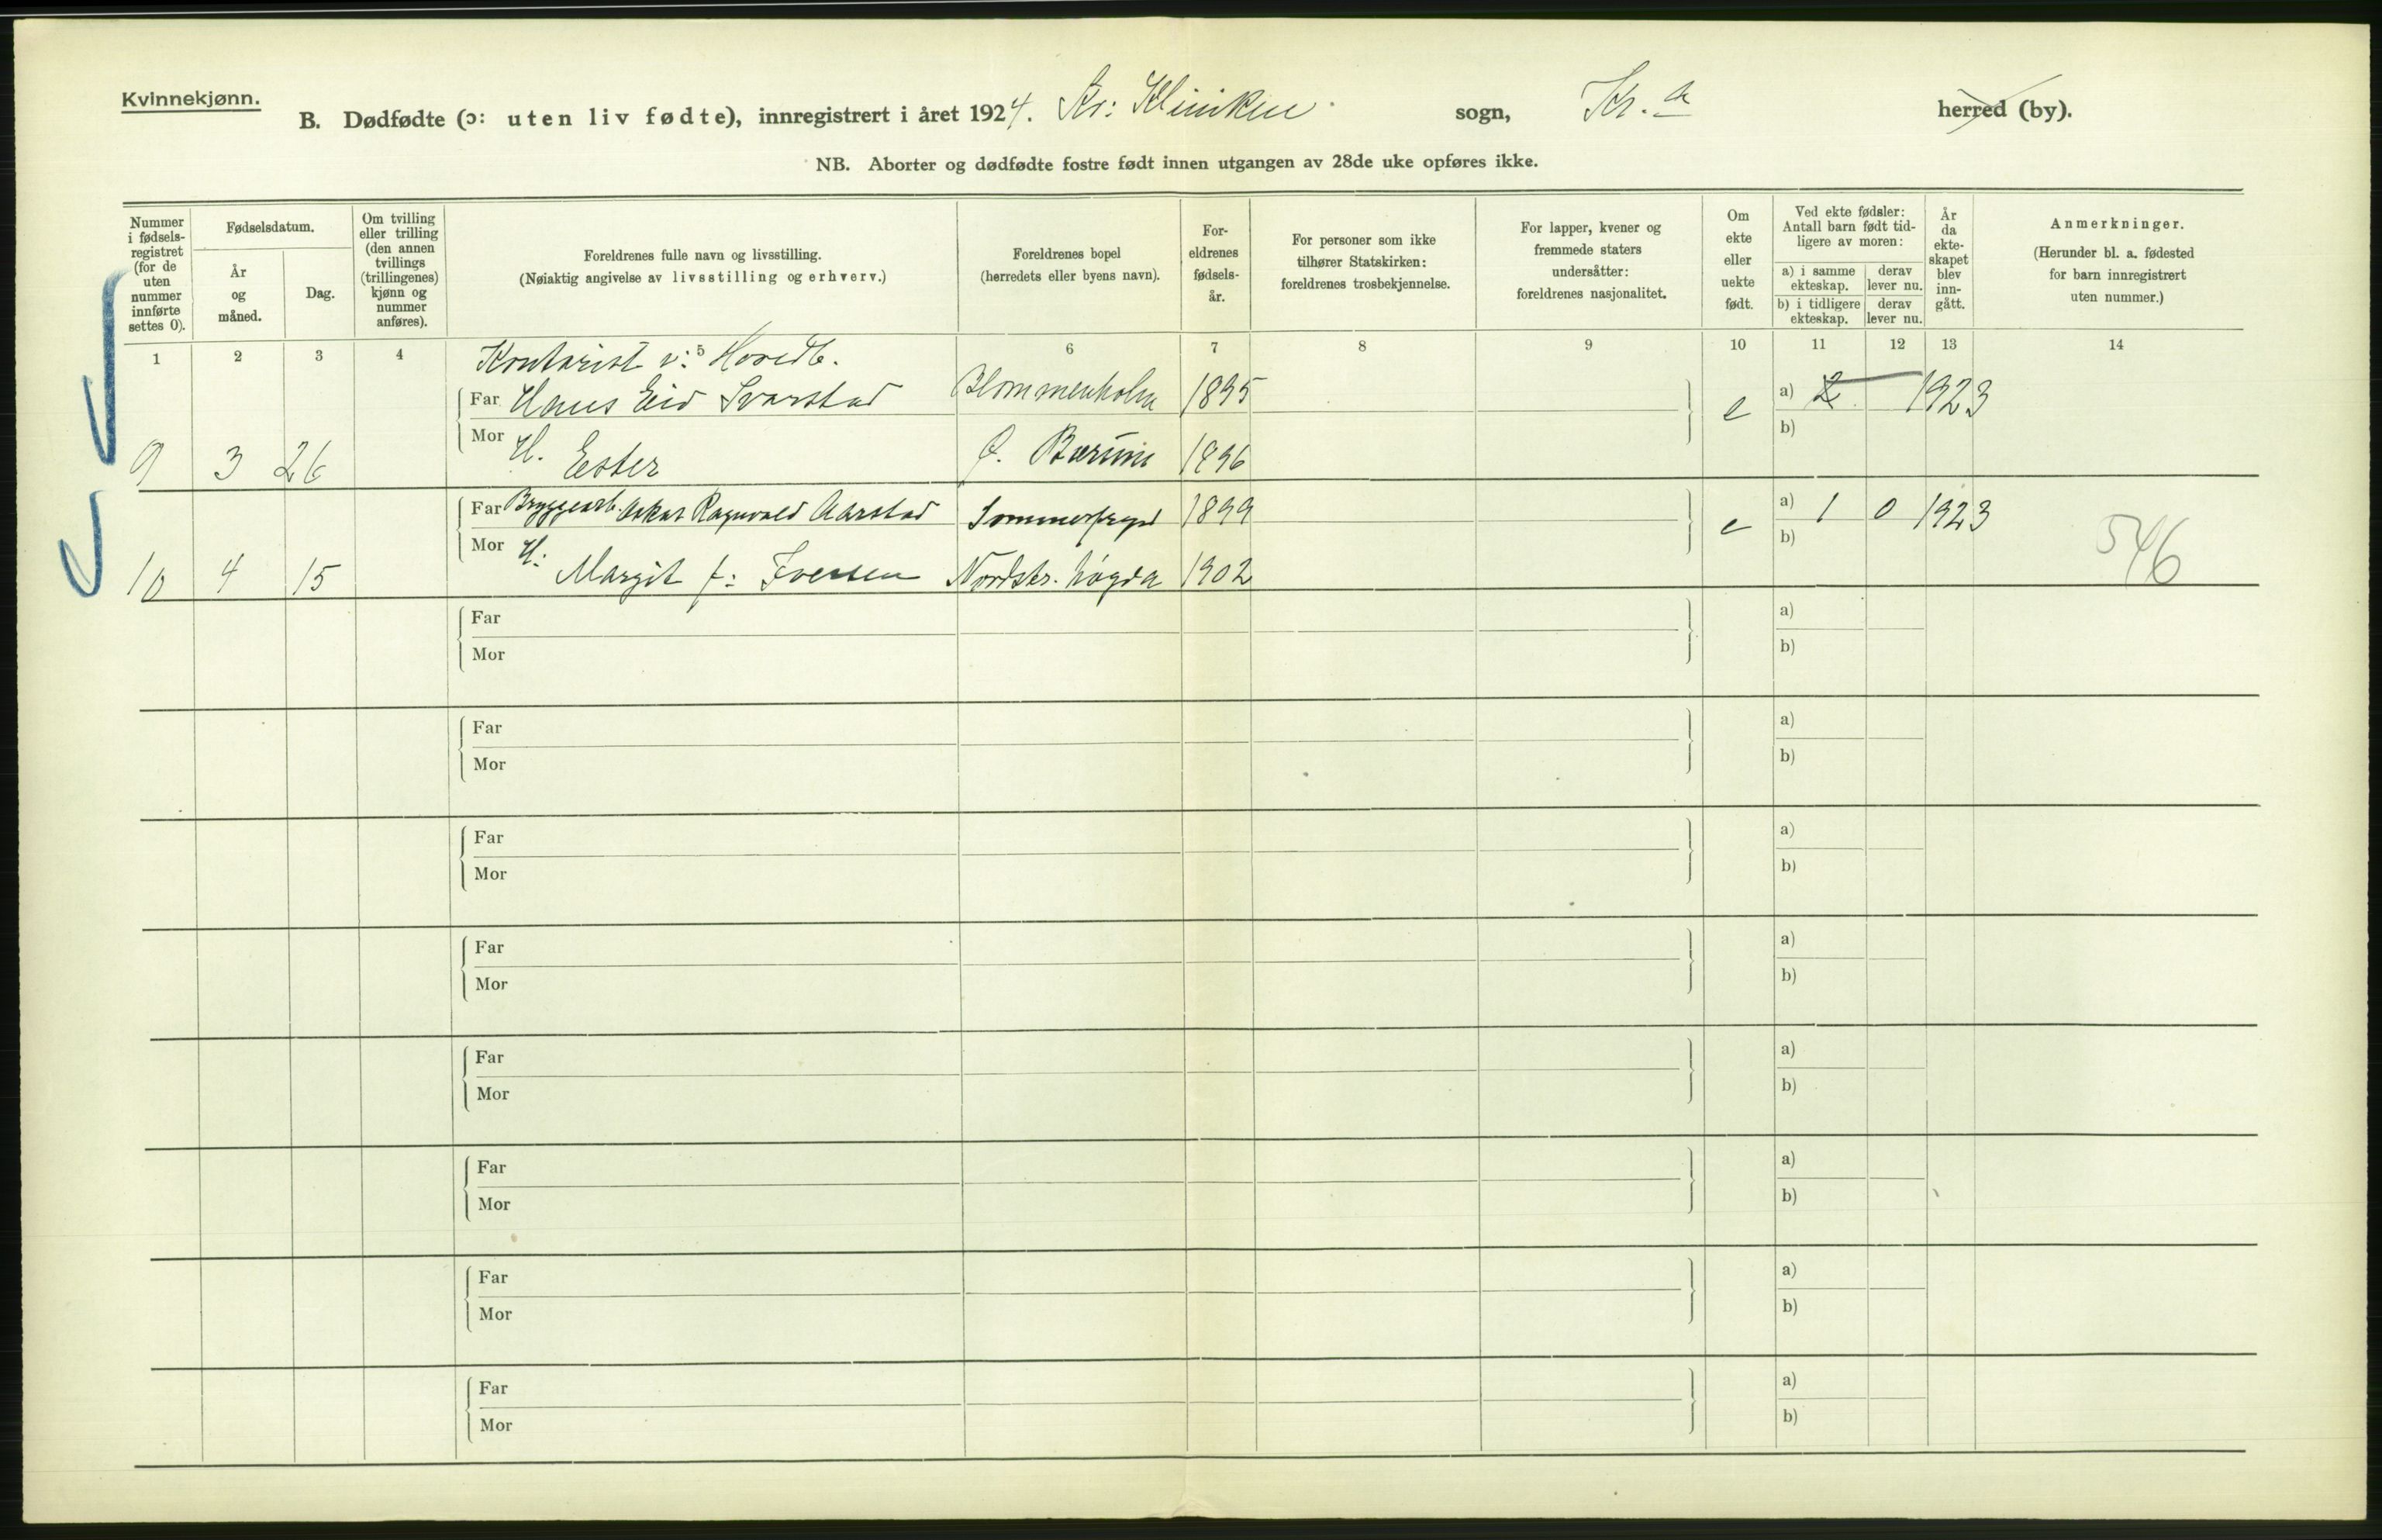 Kvinnekjønn.
B. Dødfødte (ɔ: uten liv fødte), innregistrert i året 1924. Kv: Kliniken sogn, Kr.a herred (by).
NB. Aborter og dødfødte fostre født innen utgangen av 28de uke opføres ikke.
Nummer i fødsels-registret (for de uten nummer innførte settes 0).
Fødselsdatum.
År og måned.
Dag.
Om tvilling eller trilling (den annen tvillings (trillingenes) kjønn og nummer anføres).
Foreldrenes fulle navn og livsstilling.
(Nøiaktig angivelse av livsstilling og erhverv.)
Foreldrenes bopel
(herredets eller byens navn).
For-eldrenes fødsels-år.
For personer som ikke tilhører Statskirken: foreldrenes trosbekjennelse.
For lapper, kvener og fremmede staters undersåtter: foreldrenes nasjonalitet.
Om ekte eller uekte født.
Ved ekte fødsler: Antall barn født tid-ligere av moren:
a) i samme ekteskap. derav lever nu.
b) i tidligere ekteskap. derav lever nu.
År da ekte-skapet blev inn-gått.
Anmerkninger.
(Herunder bl. a. fødested for barn innregistrert uten nummer.)
1 2 3 4 5 6 7 8 9 10 11 12 13 14
Kontorist v: Hovedb.
Far Hans Eid Svarstad Blommenholm 1895 e a) 2 1923
b)
9 3 26 Mor H. Ester Ø. Bærum 1896
Far Bryggearb. Oskar Ragnvald Aarstad Sommerfryd 1899 e a) 1 0 1923
b)
10 4 15 Mor H: Margit f: Iversen Nordstr. høgda 1902 546
Far a)
Mor b)
Far a)
Mor b)
Far a)
Mor b)
Far a)
Mor b)
Far a)
Mor b)
Far a)
Mor b)
Far a)
Mor b)
Far a)
Mor b)